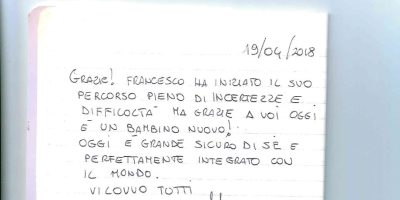 19/04/2018
GRAZIE! FRANCESCO HA INIZIATO IL SUO
PERCORSO PIENO DI INCERTEZZE E
DIFFICOLTÀ MA GRAZIE A VOI OGGI
È UN BAMBINO NUOVO!
OGGI È GRANDE SICURO DI SÈ E
PERFETTAMENTE INTEGRATO CON
IL MONDO.
VI LOVVO TUTTI